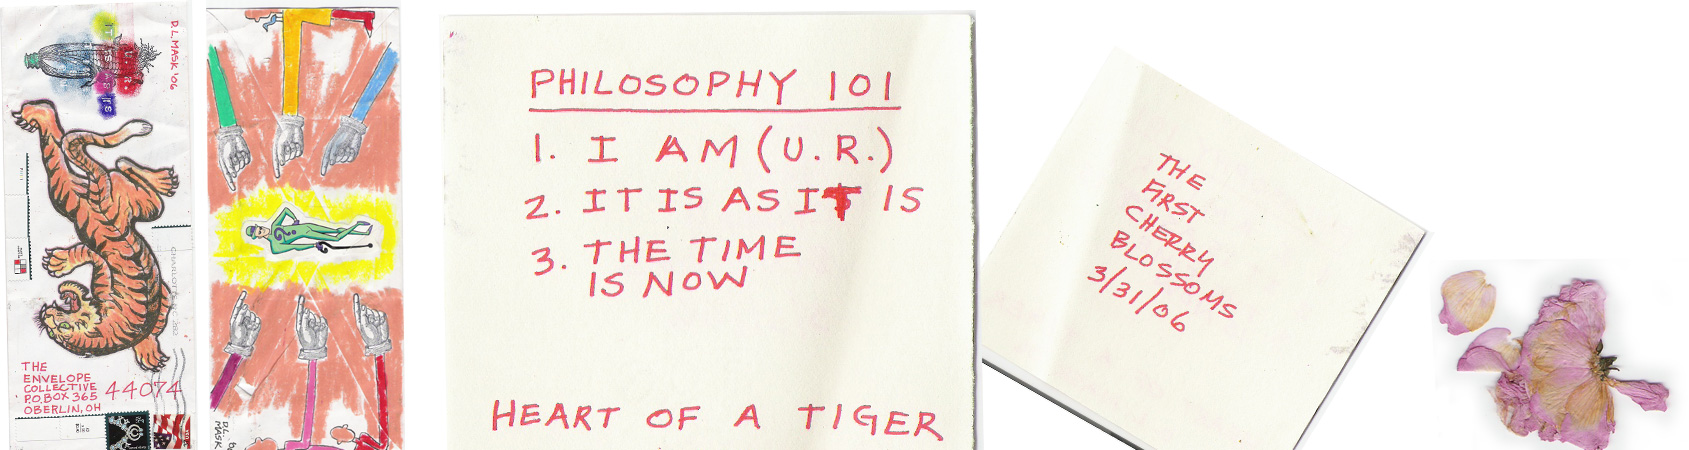 D.L. MASK '06
THE
ENVELOPE
COLLECTIVE
P.O. BOX 365
OBERLIN, OH
44074
D.L.
MASK
PHILOSOPHY 101
1. I AM (U.R.)
2. IT IS AS IT IS
3. THE TIME
IS NOW
HEART OF A TIGER
THE
FIRST
CHERRY
BLOSSOMS
3/31/06